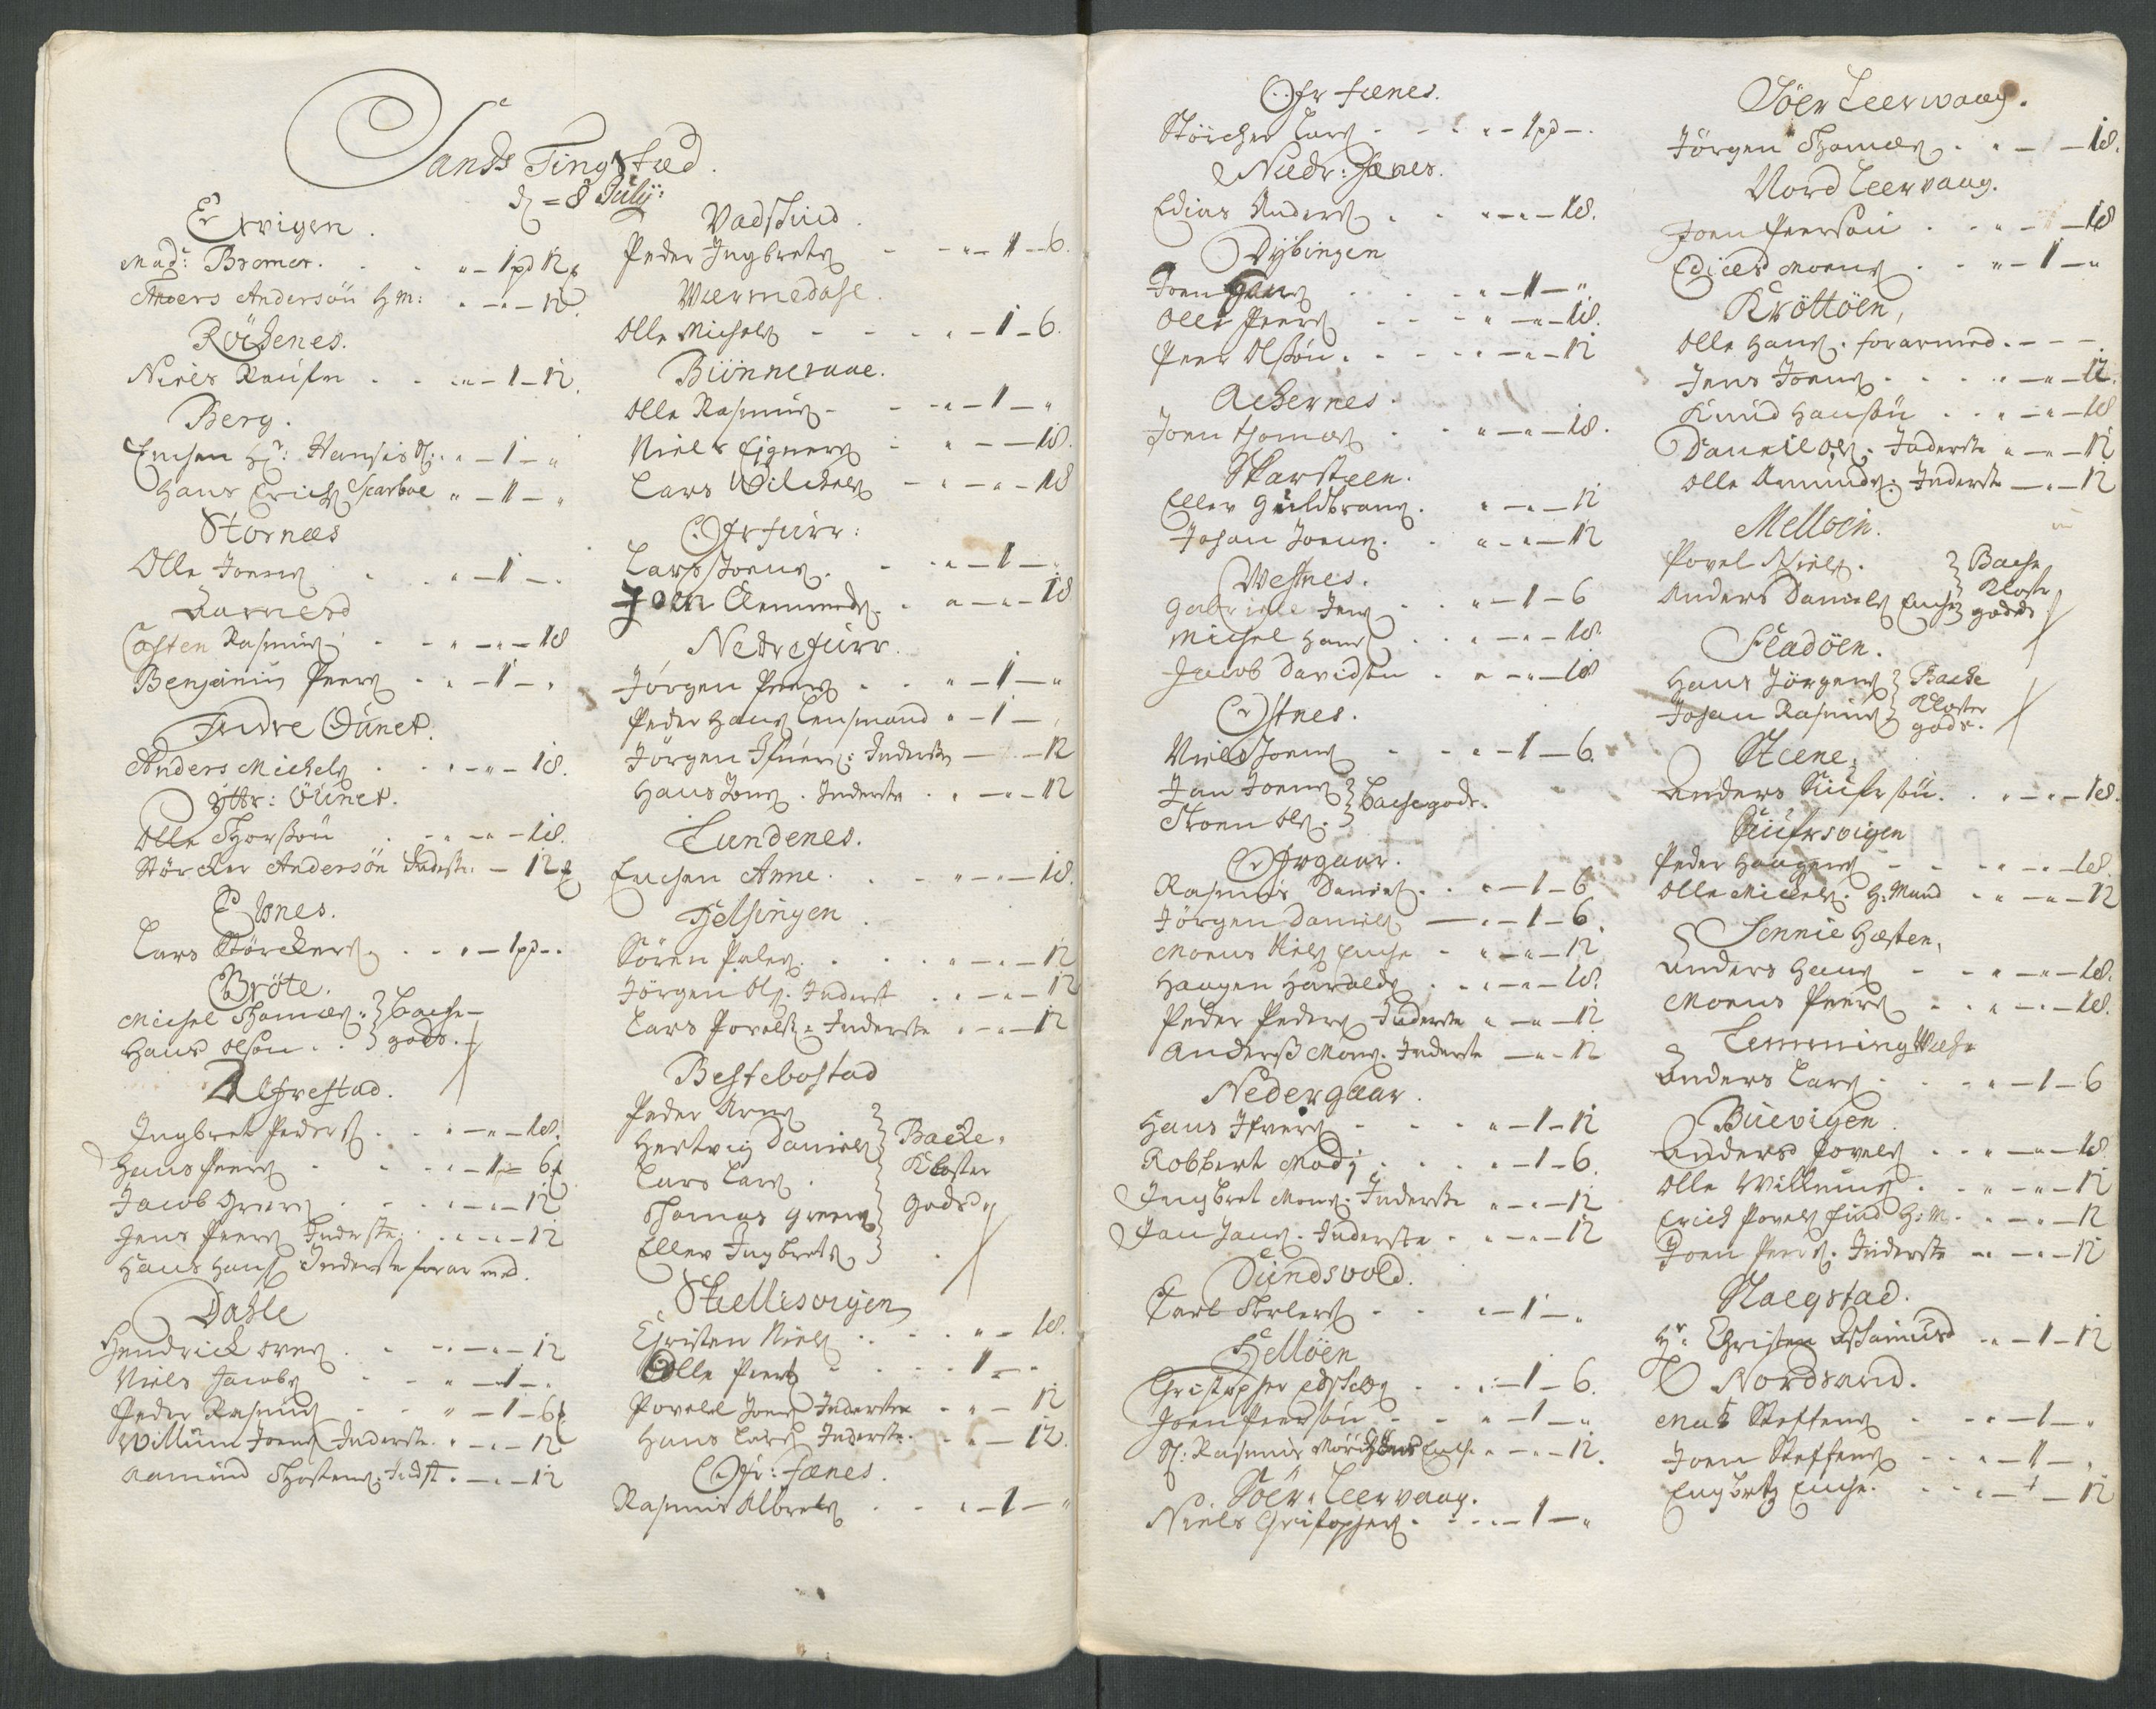 Sands Tingsted.
d = 8 Julij:
Ervigen.
Mad: Bremer. . . „ – 1 pd 12
Anders Andersön H M: . „ – „ – 12.
Röckenes.
Niels . . „ – 1 – 12.
Berg.
Enchen Hr: Hansis . – 1 – „
Hans Erichs Scarboe „ – 1 – „
Stornæs
Olle Joens . . – 1 – .
Aarnes
Tosten Rasmus . . – „ – 18
Benjamin Peers . . – 1 – .
Indre Ounet.
Anders Michels . . – „ – 18.
Ytter: Ounet.
Olle Thorsön . – „ – 18.
Störcker Andersön Inderste: – 12
Elsnes.
Lars Störckers . . „ – 1 pd – .
Bröte.
Michel Thomæs . } Backe –
Hans Olson . . } gods.
Alfrestad.
Ingbret Peders . . – „ – 18.
Hans Peers . . „ – 1 – 6
Jacob Greers . . – „ – 12
Jens Peers Inderste . – „ – 12
Hans Hans Inderste forarmed.
Dahle
Hendrick Overs . . – „ – 12
Niels Jacobs . „ – 1 – .
Peder Rasmus . . „ – 1 – 6
Willum Joens Inderste . „ – „ – 12
Aamund Thostens: Indst . – „ – 12
Vadshied.
Peder Ingbrets – . – 1 – 6.
Wermedahl.
Olle Michels – . – 1 – 6.
Bünneraae.
Olle Rasmus – . – 1 – „
Niels Eigners . – „ – 18.
Lars Wilckels – . – „ – 18
Ofrfurr:
Lars Joens . . – 1 – .
Joen Clemmeds . „ – „ – 18
Nedrefurr.
Jörgen Peers . . „ – 1 – „
Peder Hans Lensmand „ – 1 – .
Jörgen Ifvers: Inderste – „ – 12
Hans Jons . Inderste . „ – „ – 12
Lundenes.
Enchen Anne . . – „ – 18.
Helsingen.
Sören Pales . . . – „ – 12
Jörgen Ols . Inderst . – „ – 12
Lars Povels . Inderste . – „ – 12
Bestebostad
Peder Arns
Hertvig Daniels } Backe
Lars Lars . } Kloster
Thomas Greers } Gods
Ellev Ingbrets }
Skellesvigen
Christen Niels . . . – 18.
Olle Peers . . . 1 – .
Povell Joens Inderste . „ – 12
Hans Lars Inderste . – „ – 12.
Ofr: Fænes.
Rasmus Albrets . . – 1 – „
Ofr Fænes.
Störcher Lars . . – 1 pd – .
Nedr: Fænes.
Edias Anders . . – „ – 18.
Dybingen
Joen Hans . . „ – 1 – „
Olle Peers . . – „ – 18.
Peer Olsön . . – „ – 12
Ackernes.
Joen Thomæs . . „ – „ – 18.
Skarsteen.
Ellev Guldbrans . . – „ – 12
Johan Joens . . „ – „ – 12
Westnes.
Gabriele Jens . . „ – 1 – 6
Michel Hans . . – „ – 18.
Jacob Davidsen . . – „ – 18
Ostnes.
Niels Joens . . „ – 1 – 6.
Jan Joens } Backegods.
Steen Ols . }
Ofrgaar.
Rasmus Daniels . . „ – 1 – 6
Jörgen Daniels – . – 1 – 6.
Moens Niels Enche . „ – „ – 12
Haagen Haralds . . – „ – 18.
Peder Peders Inderste „ – „ – 12
Anders Mons . Inderste – „ – 12
Nedergaar.
Hans Ifvers . . „ – 1 – 12
Robbert Mods . . . – 1 – 6.
Ingbret Mons: Inderste „ – „ – 12
Jan Jans . Inderste . . – „ – 12
Sundsvold.
Carl Carlers . . – 1 – „
Helløen
Christopher . . – 1 – 6.
Joen Peersön . . „ – 1 – „
Sl: Rasmus Enche „ – „ – 12.
Söer Leervaag.
Niels Christophers . . – 1 – „
Söer Leervaag.
Jörgen Thomæs . . – „ – 18.
Nord Leervaag.
Joen Peersön . . „ – „ – 18
Edias Moens . . „ – 1 – „
Kröttöen,
Olle Hans . forarmed . – – –
Jens Joens . . . „ – „ – 12.
Knud Hansön . . „ – „ – 18
Daniell Ols . Inderste „ – „ – 12
Olle Amunds . Inderste – „ – 12
Melloen.
Povel Niels . } Backe
Anders Daniels Enche } Kloster gods
Fladöen.
Hans Jörgens } Backe
Johan Rasmus } Kloster gods.
Steene.
Anders Siufrsön . . „ – „ – 18.
Siufrsvigen
Peder Haagens – . . „ – „ – 18.
Olle Mickels . H: Mand . „ – „ – 12
Sennie Hesten.
Anders Hans . . – „ – 18.
Moens Peers . . „ – „ – 18.
Lemmingwehr
Anders Lars . . . – 1 – 6
Büevigen.
Anders Povels . . – „ – 18
Olle Willums . . – „ – 12
Erick Povels find H: M. . – „ – 12
Joen Peers . Inderste – . – „ – 12
Slaegstad.
Hr: Christen „ – 1 – 12
Nordsand.
Mats Steffens . . „ – 1 – „
Joen Steffens . . „ – 1 – .
Engbrets Enche . . – „ – 12